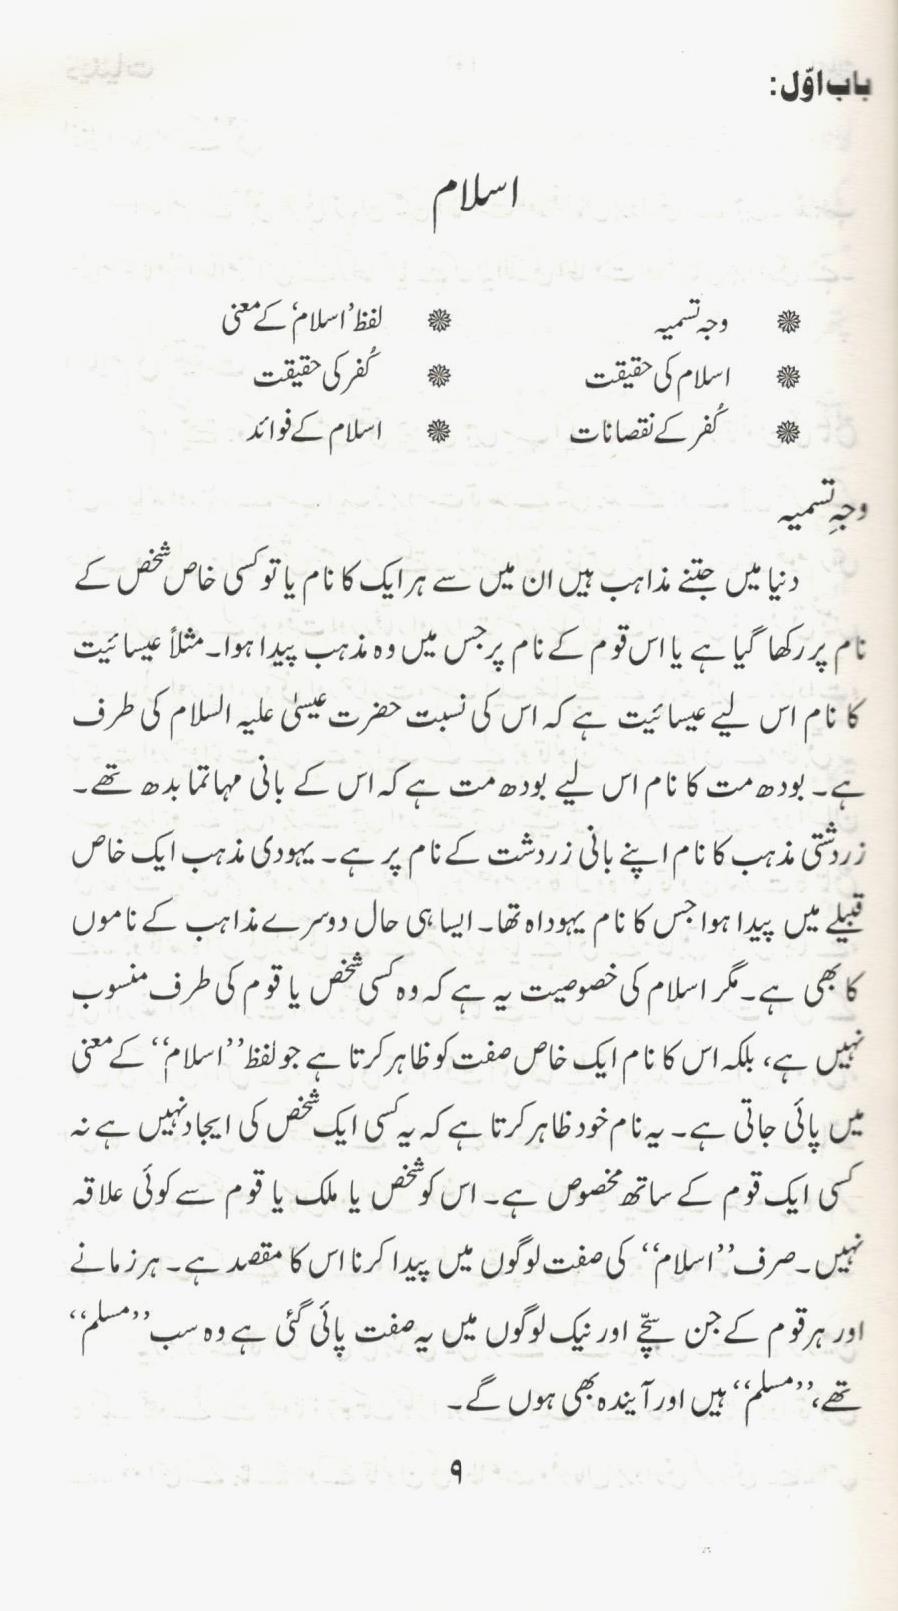 باب اوّل:
اسلام
❁ وجہ تسمیہ ❁ لفظ ’اسلام‘ کے معنی
❁ اسلام کی حقیقت ❁ کُفر کی حقیقت
❁ کُفر کے نقصانات ❁ اسلام کے فوائد
وجہِ تسمیہ
دنیا میں جتنے مذاہب ہیں ان میں سے ہر ایک کا نام یا تو کسی خاص شخص کے
نام پر رکھا گیا ہے یا اس قوم کے نام پر جس میں وہ مذہب پیدا ہوا۔ مثلاً عیسائیت
کا نام اس لیے عیسائیت ہے کہ اس کی نسبت حضرت عیسیٰ علیہ السلام کی طرف
ہے۔ بودھ مت کا نام اس لیے بودھ مت ہے کہ اس کے بانی مہاتما بدھ تھے۔
زردشتی مذہب کا نام اپنے بانی زردشت کے نام پر ہے۔ یہودی مذہب ایک خاص
قبیلے میں پیدا ہوا جس کا نام یہوداہ تھا۔ ایسا ہی حال دوسرے مذاہب کے ناموں
کا بھی ہے۔ مگر اسلام کی خصوصیت یہ ہے کہ وہ کسی شخص یا قوم کی طرف منسوب
نہیں ہے، بلکہ اس کا نام ایک خاص صفت کو ظاہر کرتا ہے جو لفظ ’’اسلام‘‘ کے معنی
میں پائی جاتی ہے۔ یہ نام خود ظاہر کرتا ہے کہ یہ کسی ایک شخص کی ایجاد نہیں ہے نہ
کسی ایک قوم کے ساتھ مخصوص ہے۔ اس کو شخص یا ملک یا قوم سے کوئی علاقہ
نہیں۔ صرف ’’اسلام‘‘ کی صفت لوگوں میں پیدا کرنا اس کا مقصد ہے۔ ہر زمانے
اور ہر قوم کے جن سچّے اور نیک لوگوں میں یہ صفت پائی گئی ہے وہ سب ’’مسلم‘‘
تھے، ’’مسلم‘‘ ہیں اور آیندہ بھی ہوں گے۔
۹